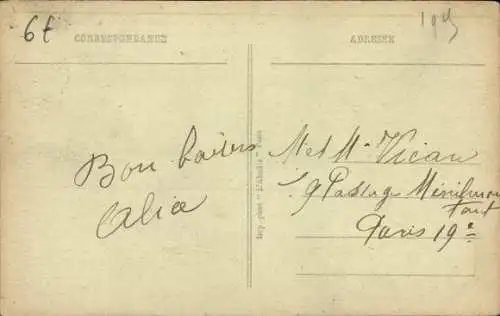 6f
CORRESPONDANCE
ADRESSE
Bon baisers
Alice
M et Mme Vican
9 Passage Ménilmon
tant
Paris 19e